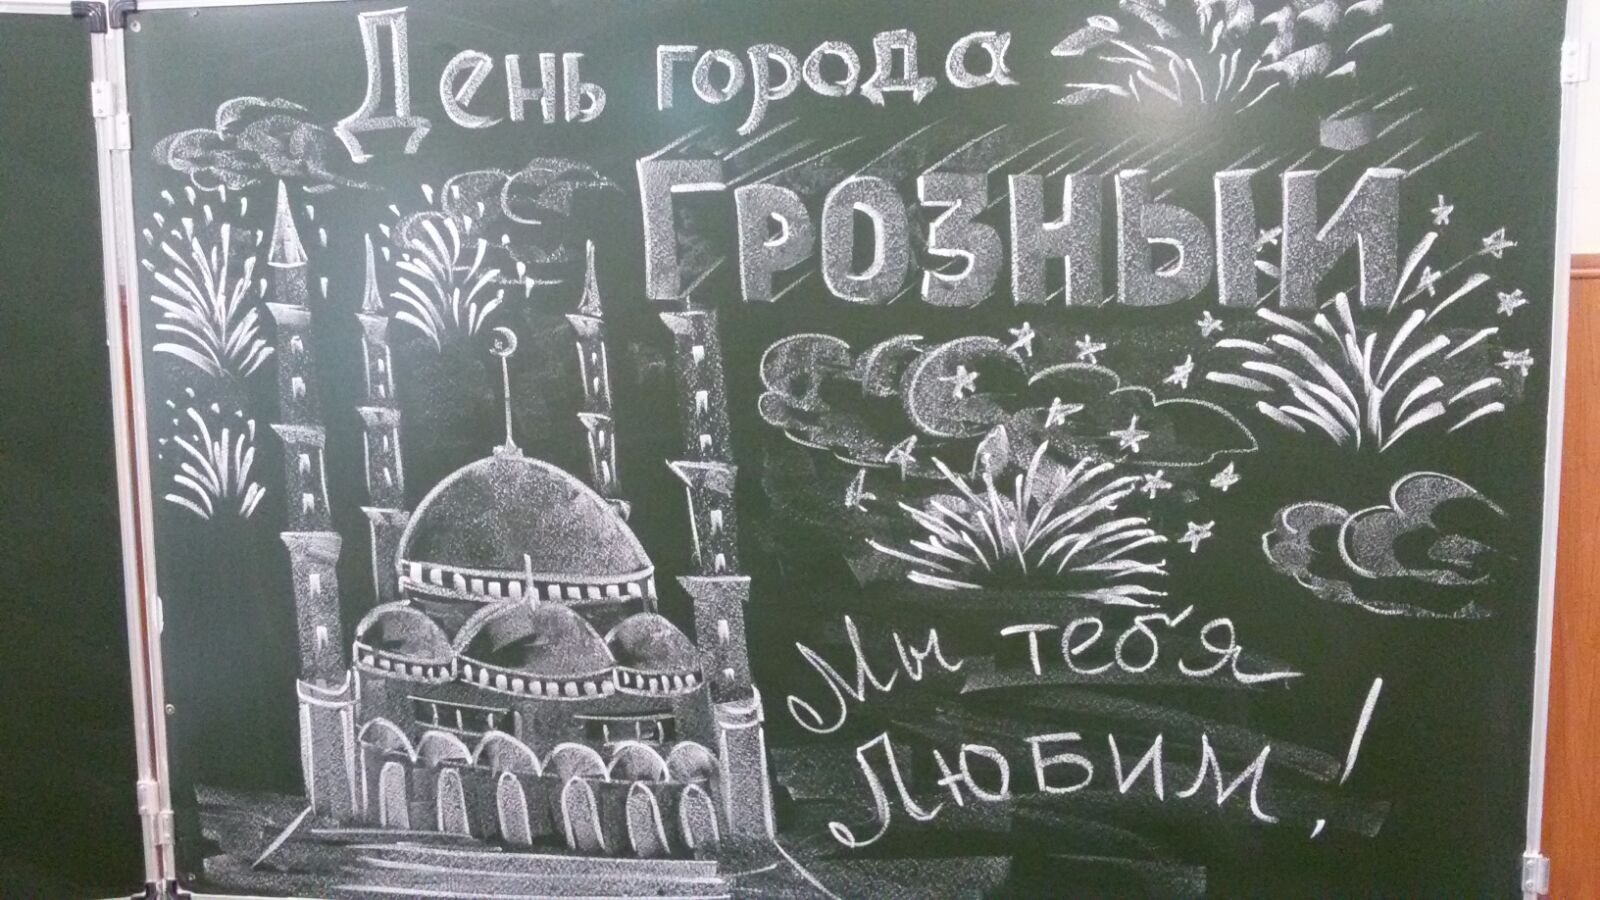 День города
Грозный
Мы тебя
Любим!